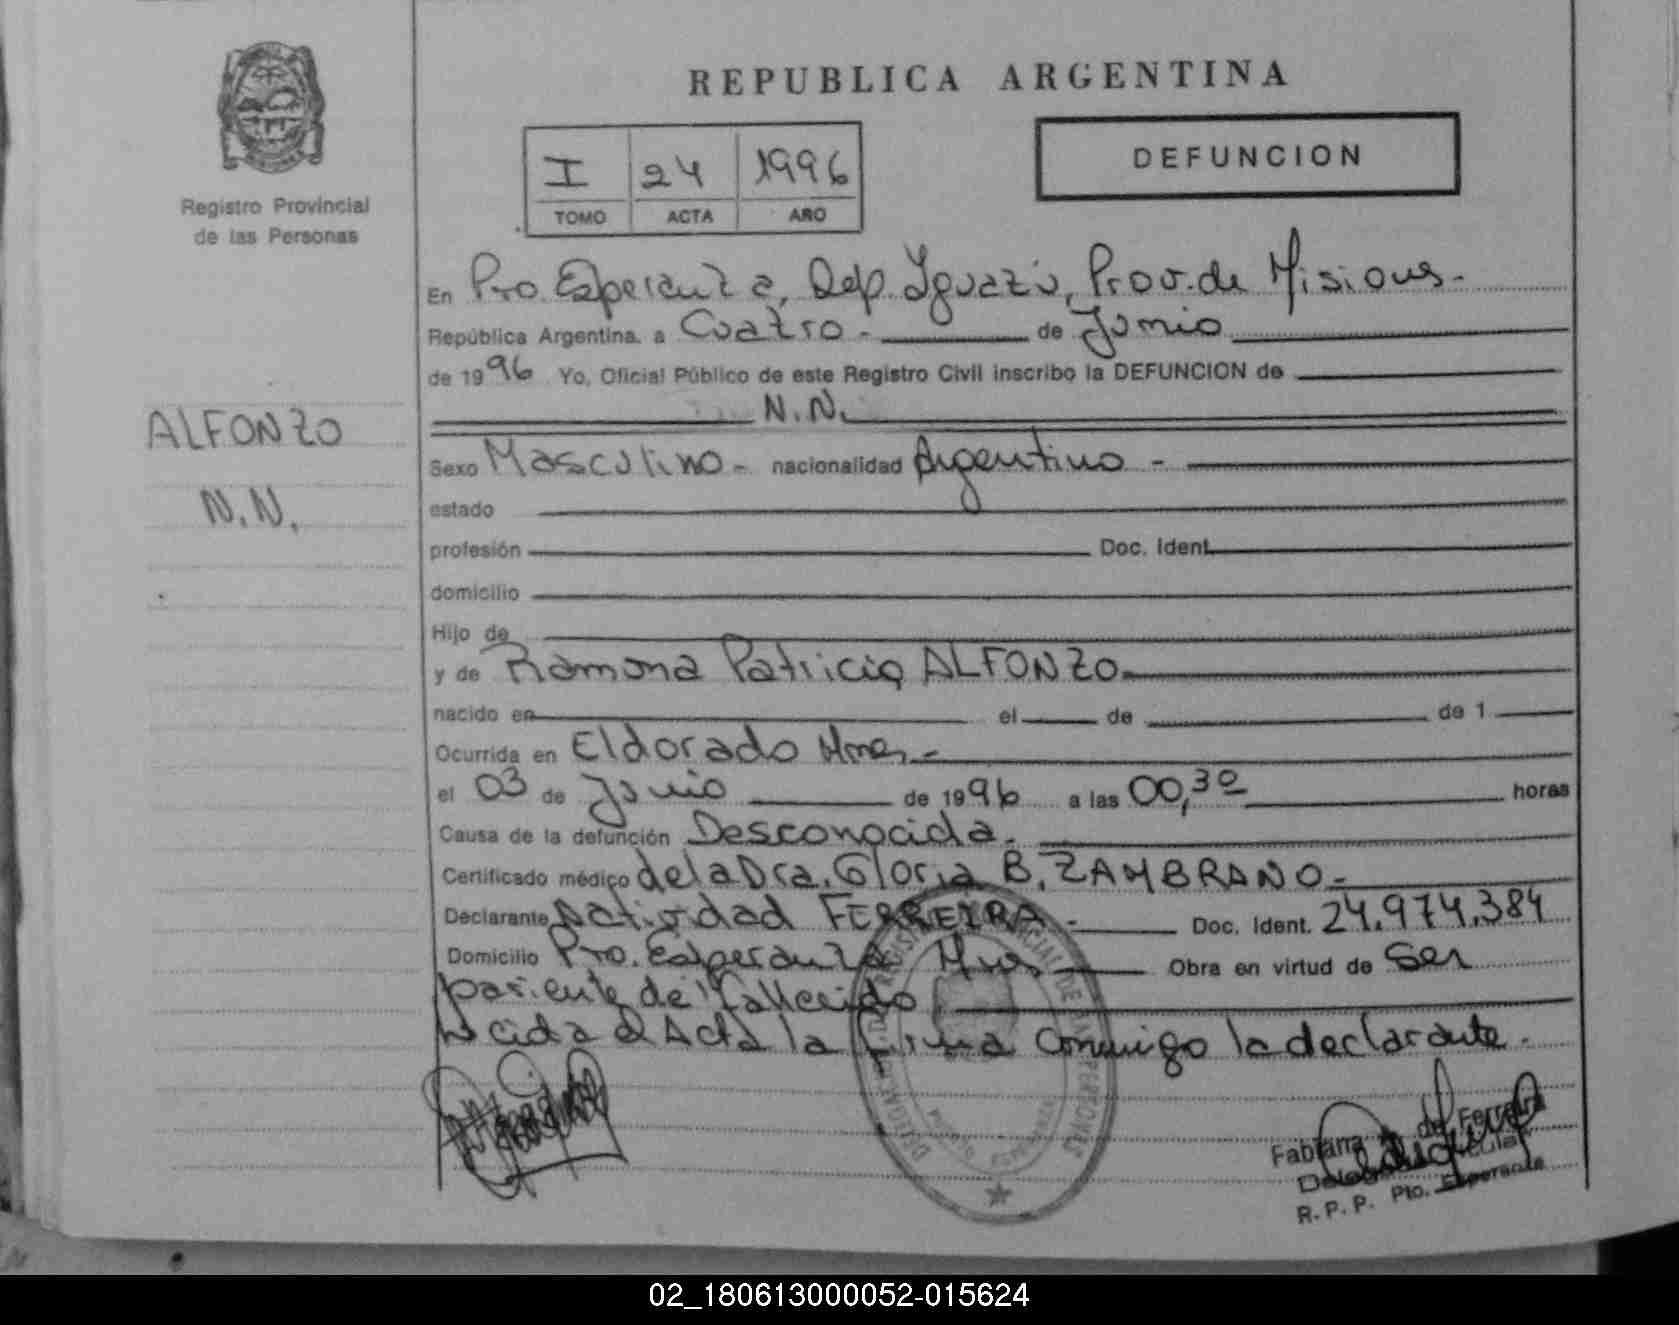 REPUBLICA ARGENTINA
I 24 1996
TOMO ACTA AÑO
DEFUNCION
Registro Provincial
de las Personas
ALFONZO
N.N.
En Pto. Esperanza, Dep. Iguazú, Prov. de Misiones.-
República Argentina, a Cuatro.- de Junio
de 1996 Yo, Oficial Público de este Registro Civil inscribo la DEFUNCION de
N.N.
Sexo Masculino.- nacionalidad Argentino.-
estado
profesión Doc. Ident.
domicilio
Hijo de
y de Ramona Patricia ALFONZO.
nacido en el de de 1
Ocurrida en Eldorado Mnes.-
el 03 de Junio de 1996 a las 00,30 horas
Causa de la defunción Desconocida.
Certificado médico de la Dra. Gloria B. ZAMBRANO.-
Declarante Natividad FERREIRA.- Doc. Ident. 24.974.384
Domicilio Pto. Esperanza Mnes Obra en virtud de Ser
pariente del fallecido
Leída el Acta la firma conmigo la declarante.-
Fabiana de Ferreira
R. P. P. Pto. Esperanza
02_180613000052-015624